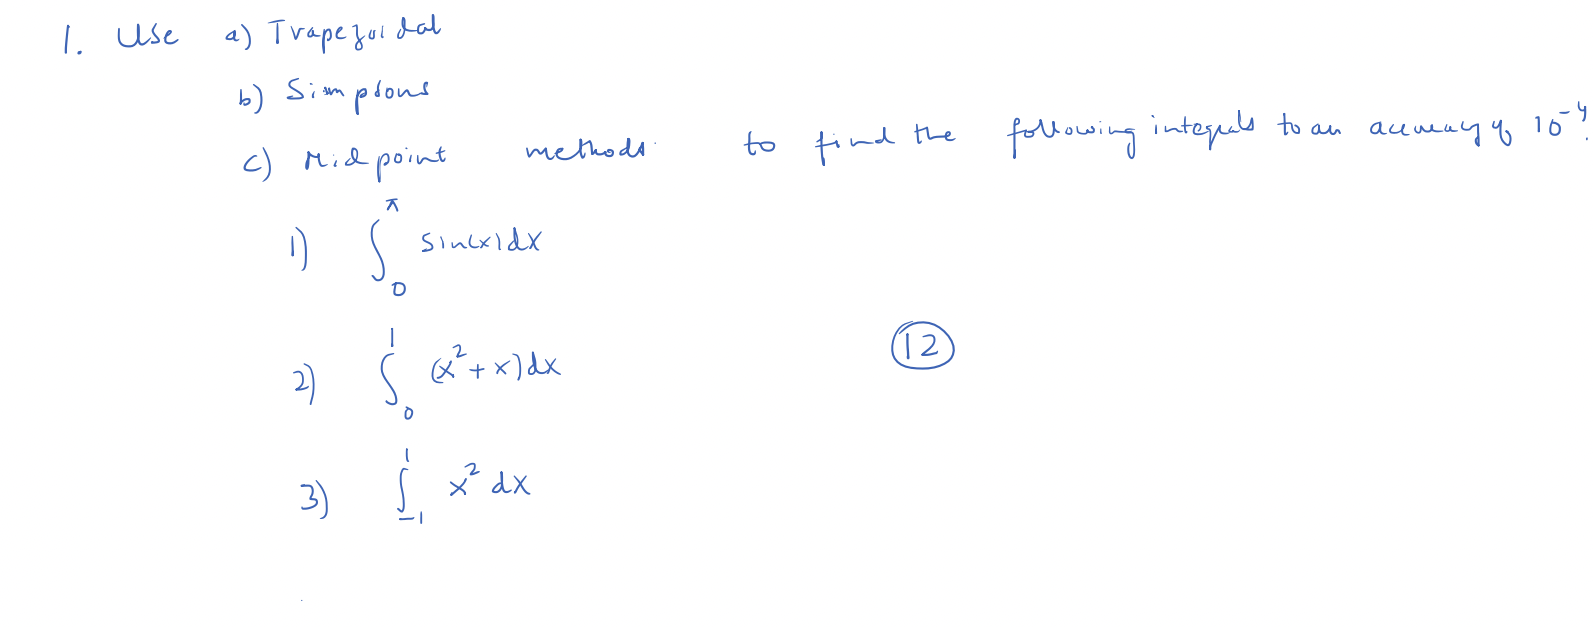 1. Use a) Trapezoidal
b) Simpsons
c) Midpoint methods to find the following integrals to an accuracy of 10⁻⁴.
1) ∫₀^π sin(x)dx
2) ∫₀¹ (x²+x)dx
12
3) ∫₋₁¹ x² dx